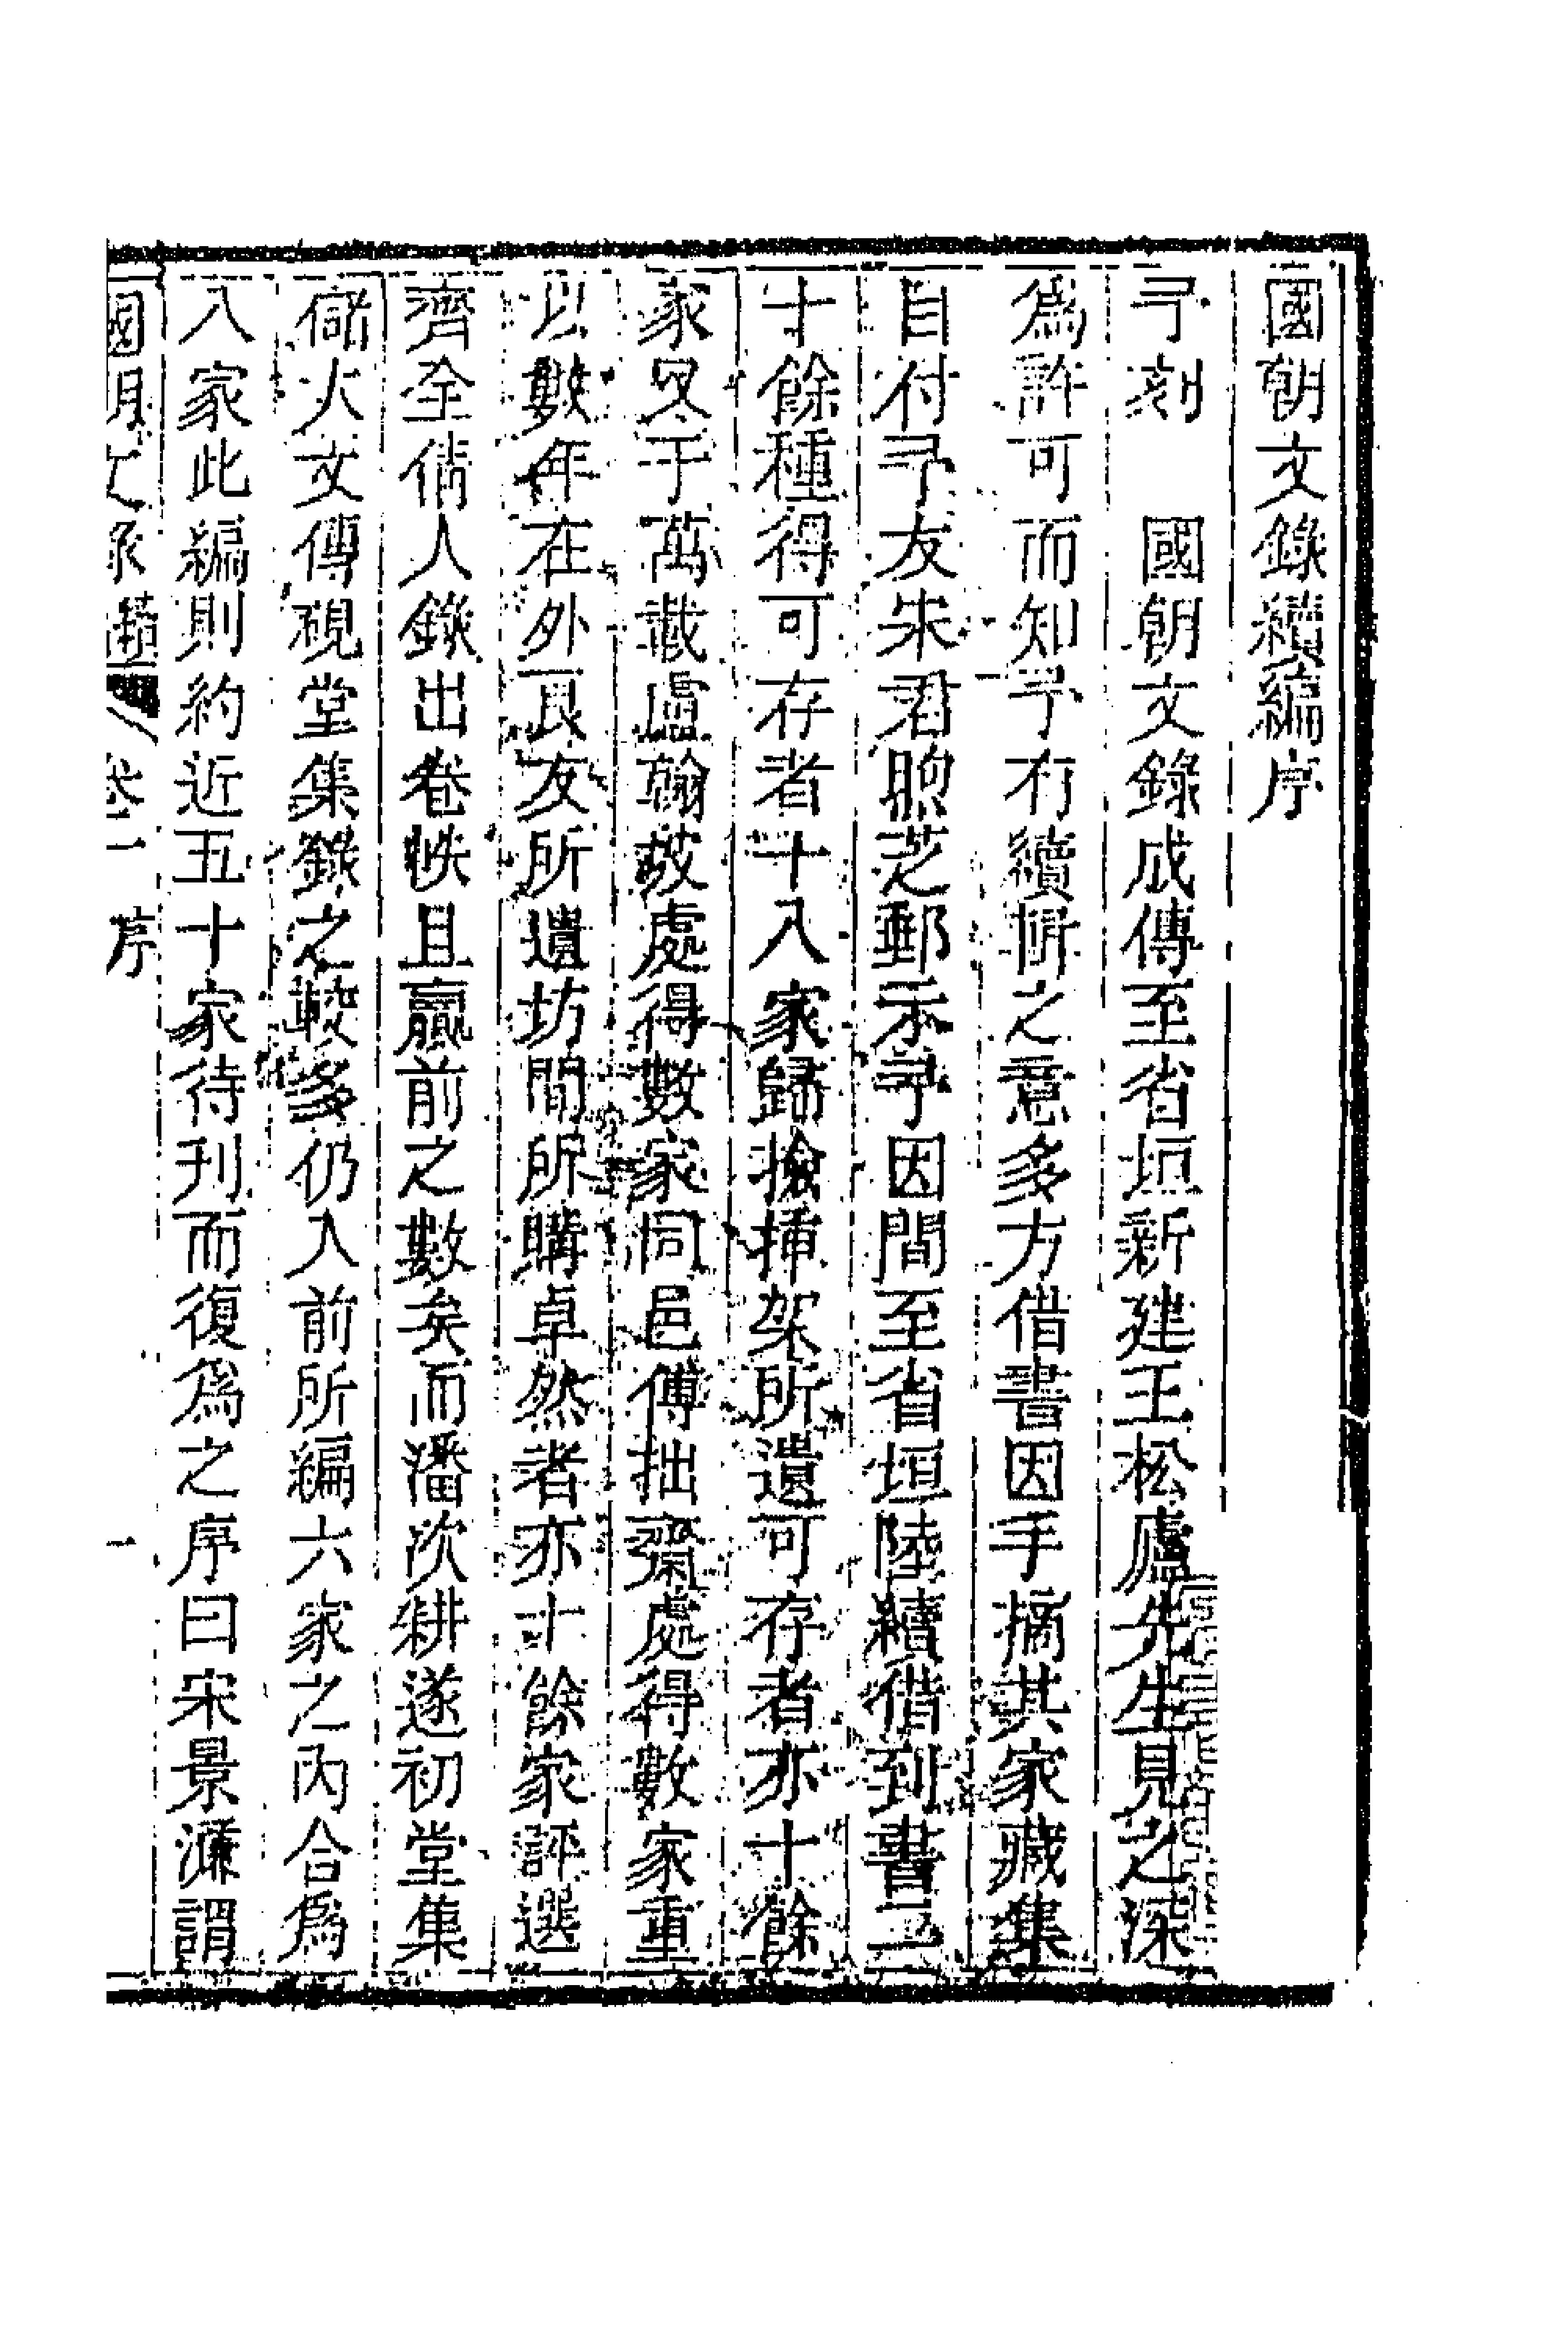 國朝文錄續編序
予刻　國朝文錄成傳至省垣新建王松廬先生見之深
爲許可而知予有續衎之意多方借書因手摘其家藏集
目付予友朱君煦芝郵示予因間至省垣陸續借到書三
十餘種得可存者十八家歸撿揷架所遺可存者亦十餘
家又于萬載盧翰坡處得數家同邑傅拙齋處得數家重
以數年在外良友所遺坊間所購卓然者亦十餘家評選
濟全倩人錄出卷帙且贏前之數矣而潘次耕遂初堂集
儲火文傳硯堂集錄之較多仍入前所編六家之內合爲
八家此編則約近五十家待刊而復爲之序曰宋景濂謂
國朝文錄續編　卷一　序　一